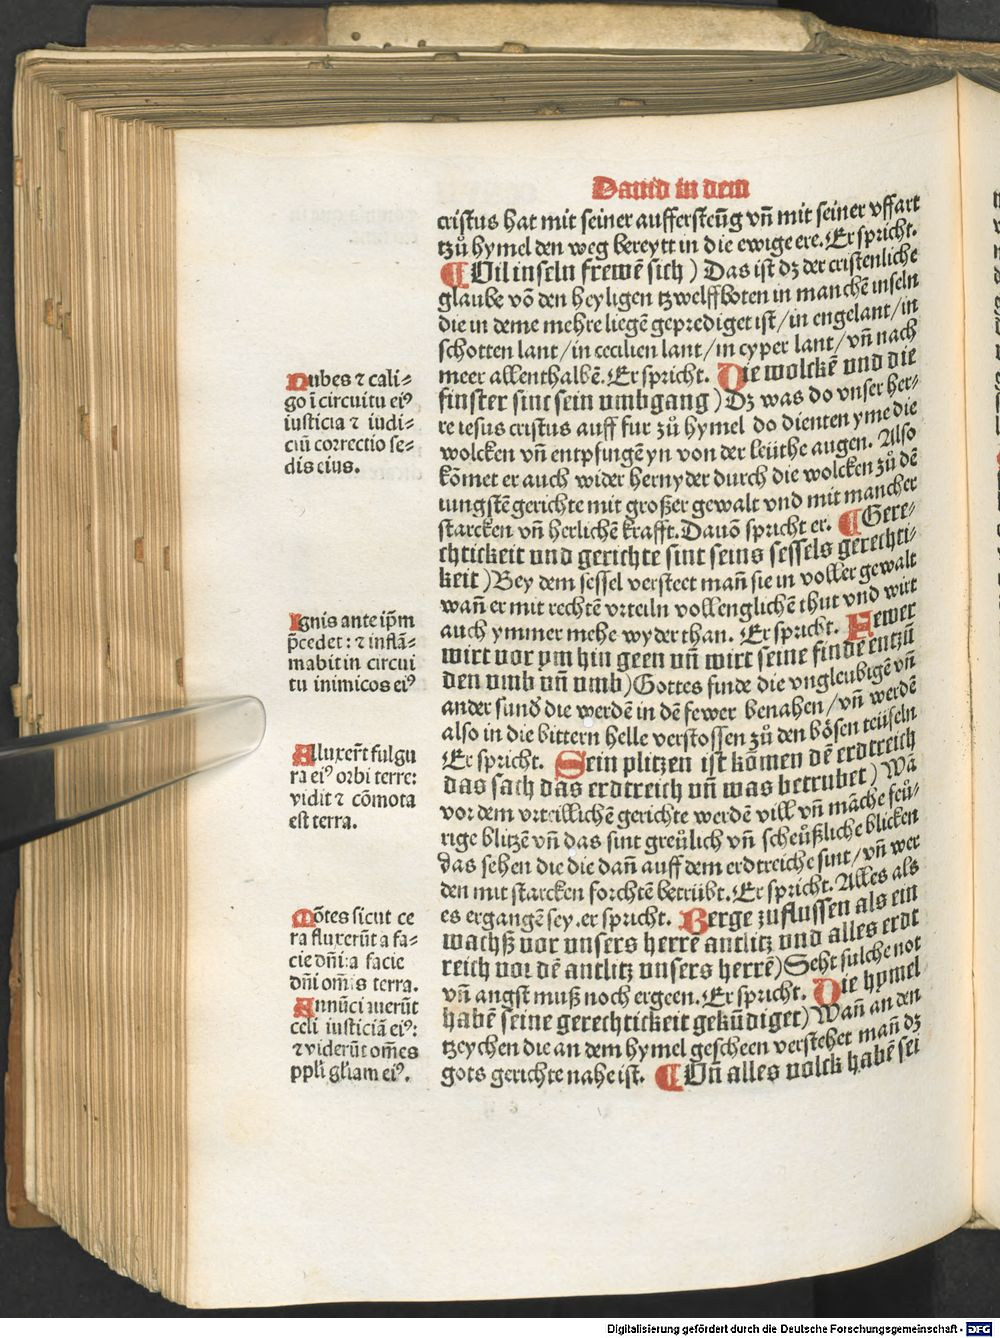 Dauid in dem
cristus hat mit seiner auffersteũg vñ mit seiner vffart
tzů hymel den weg bereytt in die ewige ere. Er spricht.
¶ Vil inseln frewẽ sich) Das ist dz der cristenliche
glaube võ den heyligen tzwelffboten in manchẽ inseln
die in deme mehre liegẽ geprediget ist/in engelant/in
schotten lant/in cecilien lant/in cyper lant/vñ nach
meer allenthalbẽ. Er spricht. Die wolckẽ vnd die
finster sint sein vmbgang) Dz was do vnser her⸗
re iesus cristus auff fur zů hymel do dienten yme die
wolcken vñ entpfingẽ yn von der leüthe augen. Also
kõmet er auch wider hernyder durch die wolcken zů dẽ
iungstẽ gerichte mit großer gewalt vnd mit mancher
starcken vñ herlichẽ krafft. Dauõ spricht er. ¶ Gere⸗
chtickeit vnd gerichte sint seins sessels gerechti⸗
keit) Bey dem sessel versteet mañ sie in voller gewalt
wañ er mit rechtẽ vrteiln vollenglichẽ thut vnd wirt
auch ymmer mehe wyder than. Er spricht. Fewer
wirt vor ym hin geen vñ wirt seine findẽ entzũ
den vmb vñ vmb) Gottes finde die vngleubigẽ vñ
ander sund die werdẽ in dẽ fewer benahen/vñ werdẽ
also in die bittern helle verstossen zů den bösen teüseln
Er spricht. Sein plitzen ist kõmen dẽ erdtreich
das sach das erdtreich vñ was betrubet) Wã
vor dem vrteillichẽ gerichte werdẽ vill vñ mãche feů⸗
rige blitzẽ vñ das sint greůlich vñ scheůßliche blicken
das sehen die die dañ auff dem erdtreiche sint/vñ wer
den mit starcken forchtẽ betrübt. Er spricht. Alles als
es ergangẽ sey. er spricht. Berge zuflussen als ein
wachß vor vnsers herrẽ antlitz vnd alles erdt
reich vor dẽ antlitz vnsers herrẽ) Seht sulche not
vñ angst muß noch ergeen. Er spricht. Die hymel
habẽ seine gerechtickeit gekũdiget) Wañ an den
tzeychen die an dem hymel gescheen verstehet mañ dz
gots gerichte nahe ist. ¶ Vñ alles volck habẽ sei
Nubes ⁊ cali⸗
go ĩ circuitu eiꝰ
iusticia ⁊ iudi⸗
ciũ correctio se⸗
dis eius.
Ignis ante ip̃m
p̃cedet: ⁊ inflã⸗
mabit in circui
tu inimicos eiꝰ
Alluxer̃t fulgu
ra eiꝰ orbi terre:
vidit ⁊ cõmota
est terra.
Mõtes sicut ce
ra fluxerũt a fa⸗
cie dñi: a facie
dñi om̃is terra.
Annũciauerũt
celi iusticiã eiꝰ:
⁊ viderũt om̃es
pp̃li gl̃iam eiꝰ.
Digitalisierung gefördert durch die Deutsche Forschungsgemeinschaft - DFG